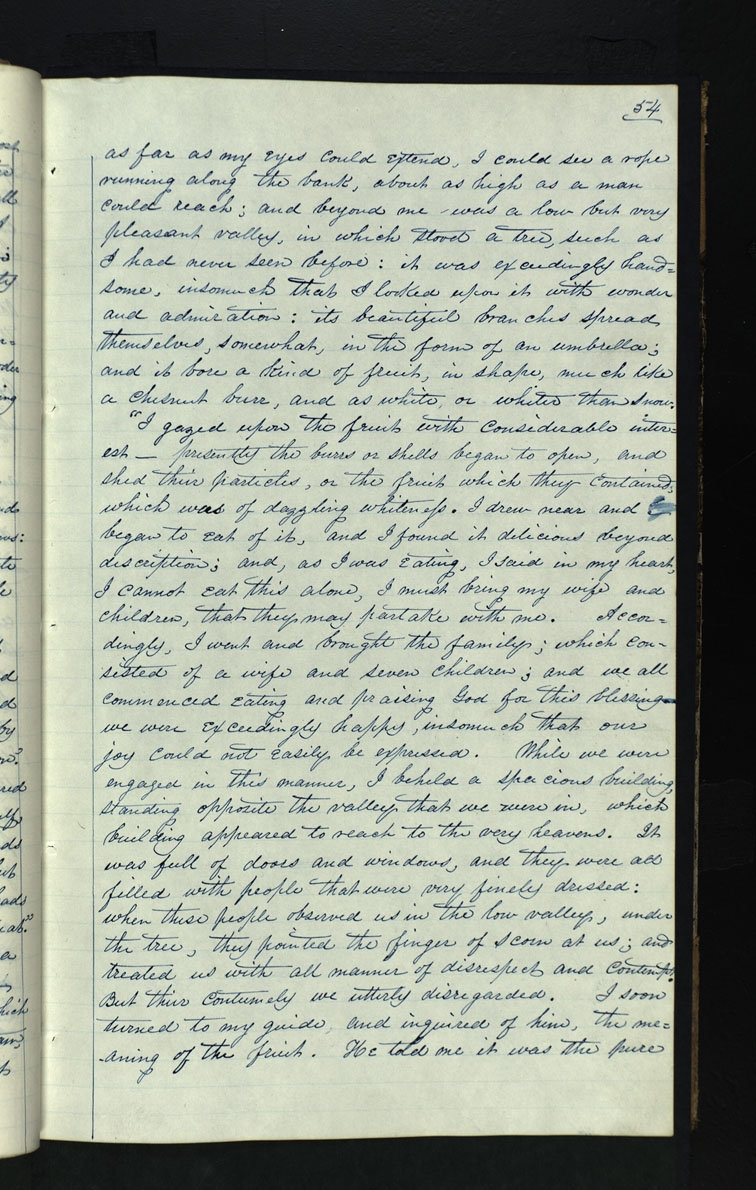 54
as far as my eyes could extend, I could see a rope
running along the bank, about as high as a man
could reach; and beyond me was a low but very
pleasant valley, in which stood a tree, such as
I had never seen before: it was exceedingly hand=
some, insomuch that I looked upon it with wonder
and admiration: its beautiful branches spread
themselves, somewhat, in the form of an umbrella;
and it bore a kind of fruit, in shape, much like
a chesnut burr, and as white, or whiter than snow.
"I gazed upon the fruit with considerable inter=
est — presently the burrs or shells began to open, and
shed their particles, or the fruit which they contained;
which was of dazzling whiteness. I drew near and
began to eat of it, and I found it delicious beyond
description; and, as I was eating, I said in my heart,
I cannot eat this alone, I must bring my wife and
children, that they may partake with me. Accor=
dingly, I went and brought the family; which con-
sisted of a wife and seven children; and we all
commenced eating and praising God for this blessing
we were exceedingly happy, insomuch that our
joy could not easily be expressed. While we were
engaged in this manner, I beheld a spacious building,
standing opposite the valley that we were in, which
building appeared to reach to the very heavens. It
was full of doors and windows, and they were all
filled with people that were very finely dressed:
when these people observed us in the low valley, under
the tree, they pointed the finger of scorn at us; and
treated us with all manner of disrespect and contempt.
But their contumely we utterly disregarded. I soon
turned to my guide, and inquired of him, the me=
-aning of the fruit. He told me it was the pure